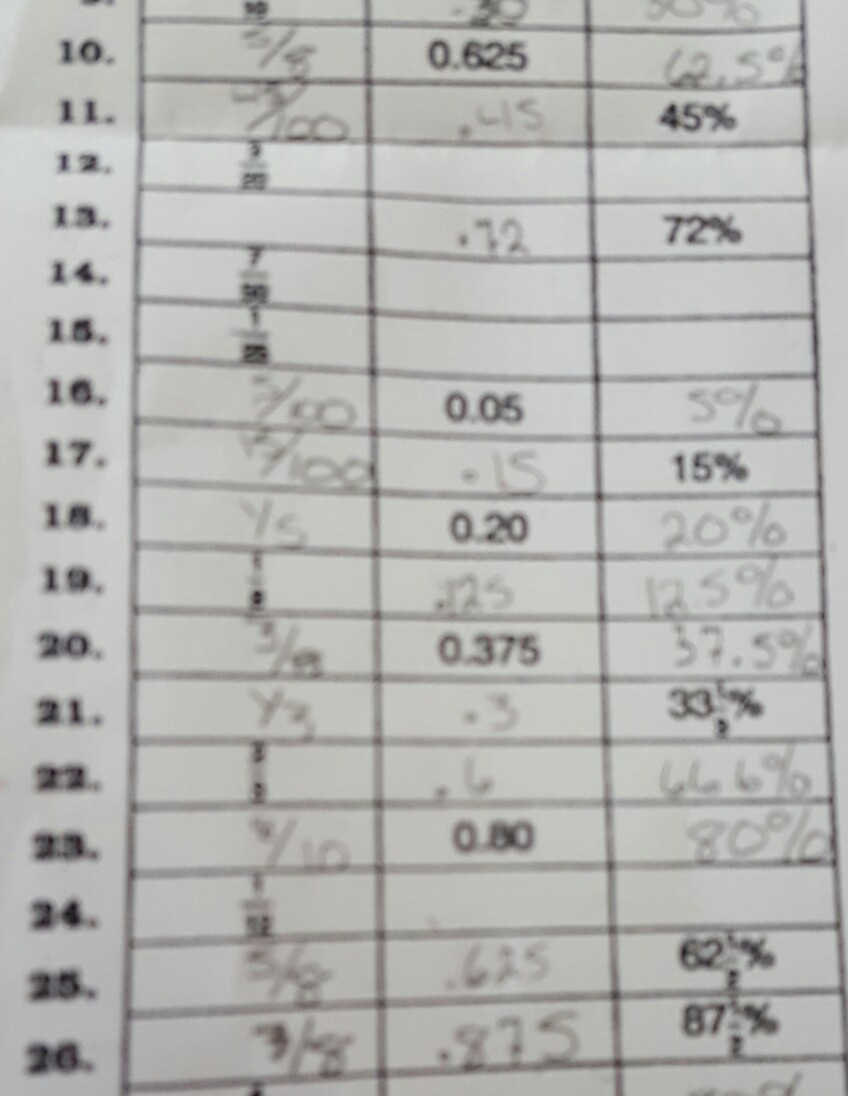 10. 5/8 0.625 62.5%
11. 45/100 .45 45%
12. 3/20
13. .72 72%
14. 7/50
15. 1/25
16. 5/100 0.05 5%
17. 15/100 .15 15%
18. 1/5 0.20 20%
19. 1/8 .125 12.5%
20. 3/8 0.375 37.5%
21. 1/3 .3 33 1/3%
22. 2/3 .6 66.6%
23. 8/10 0.80 80%
24.
25. 5/8 .625 62 1/2%
26. 7/8 .875 87 1/2%